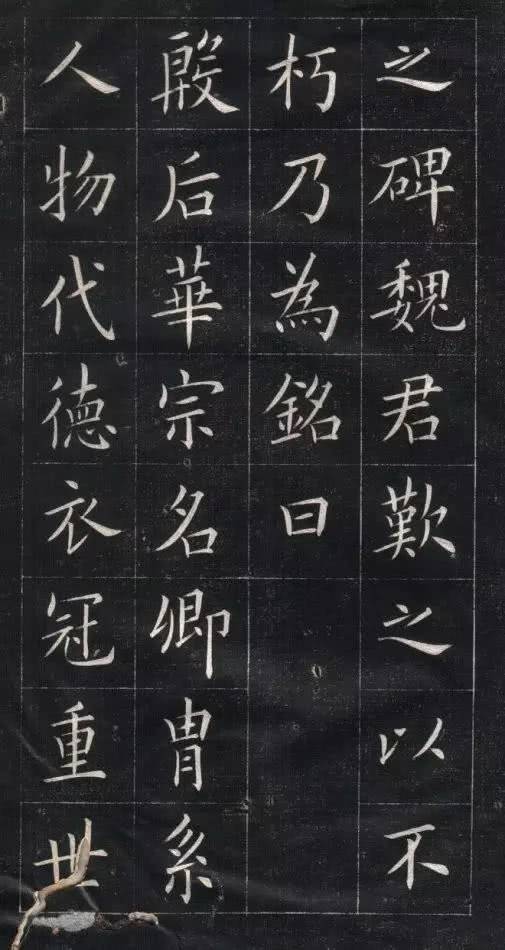 之碑魏君歎之以不
朽乃為銘曰
殷后華宗名卿胄系
人物代德衣冠重世